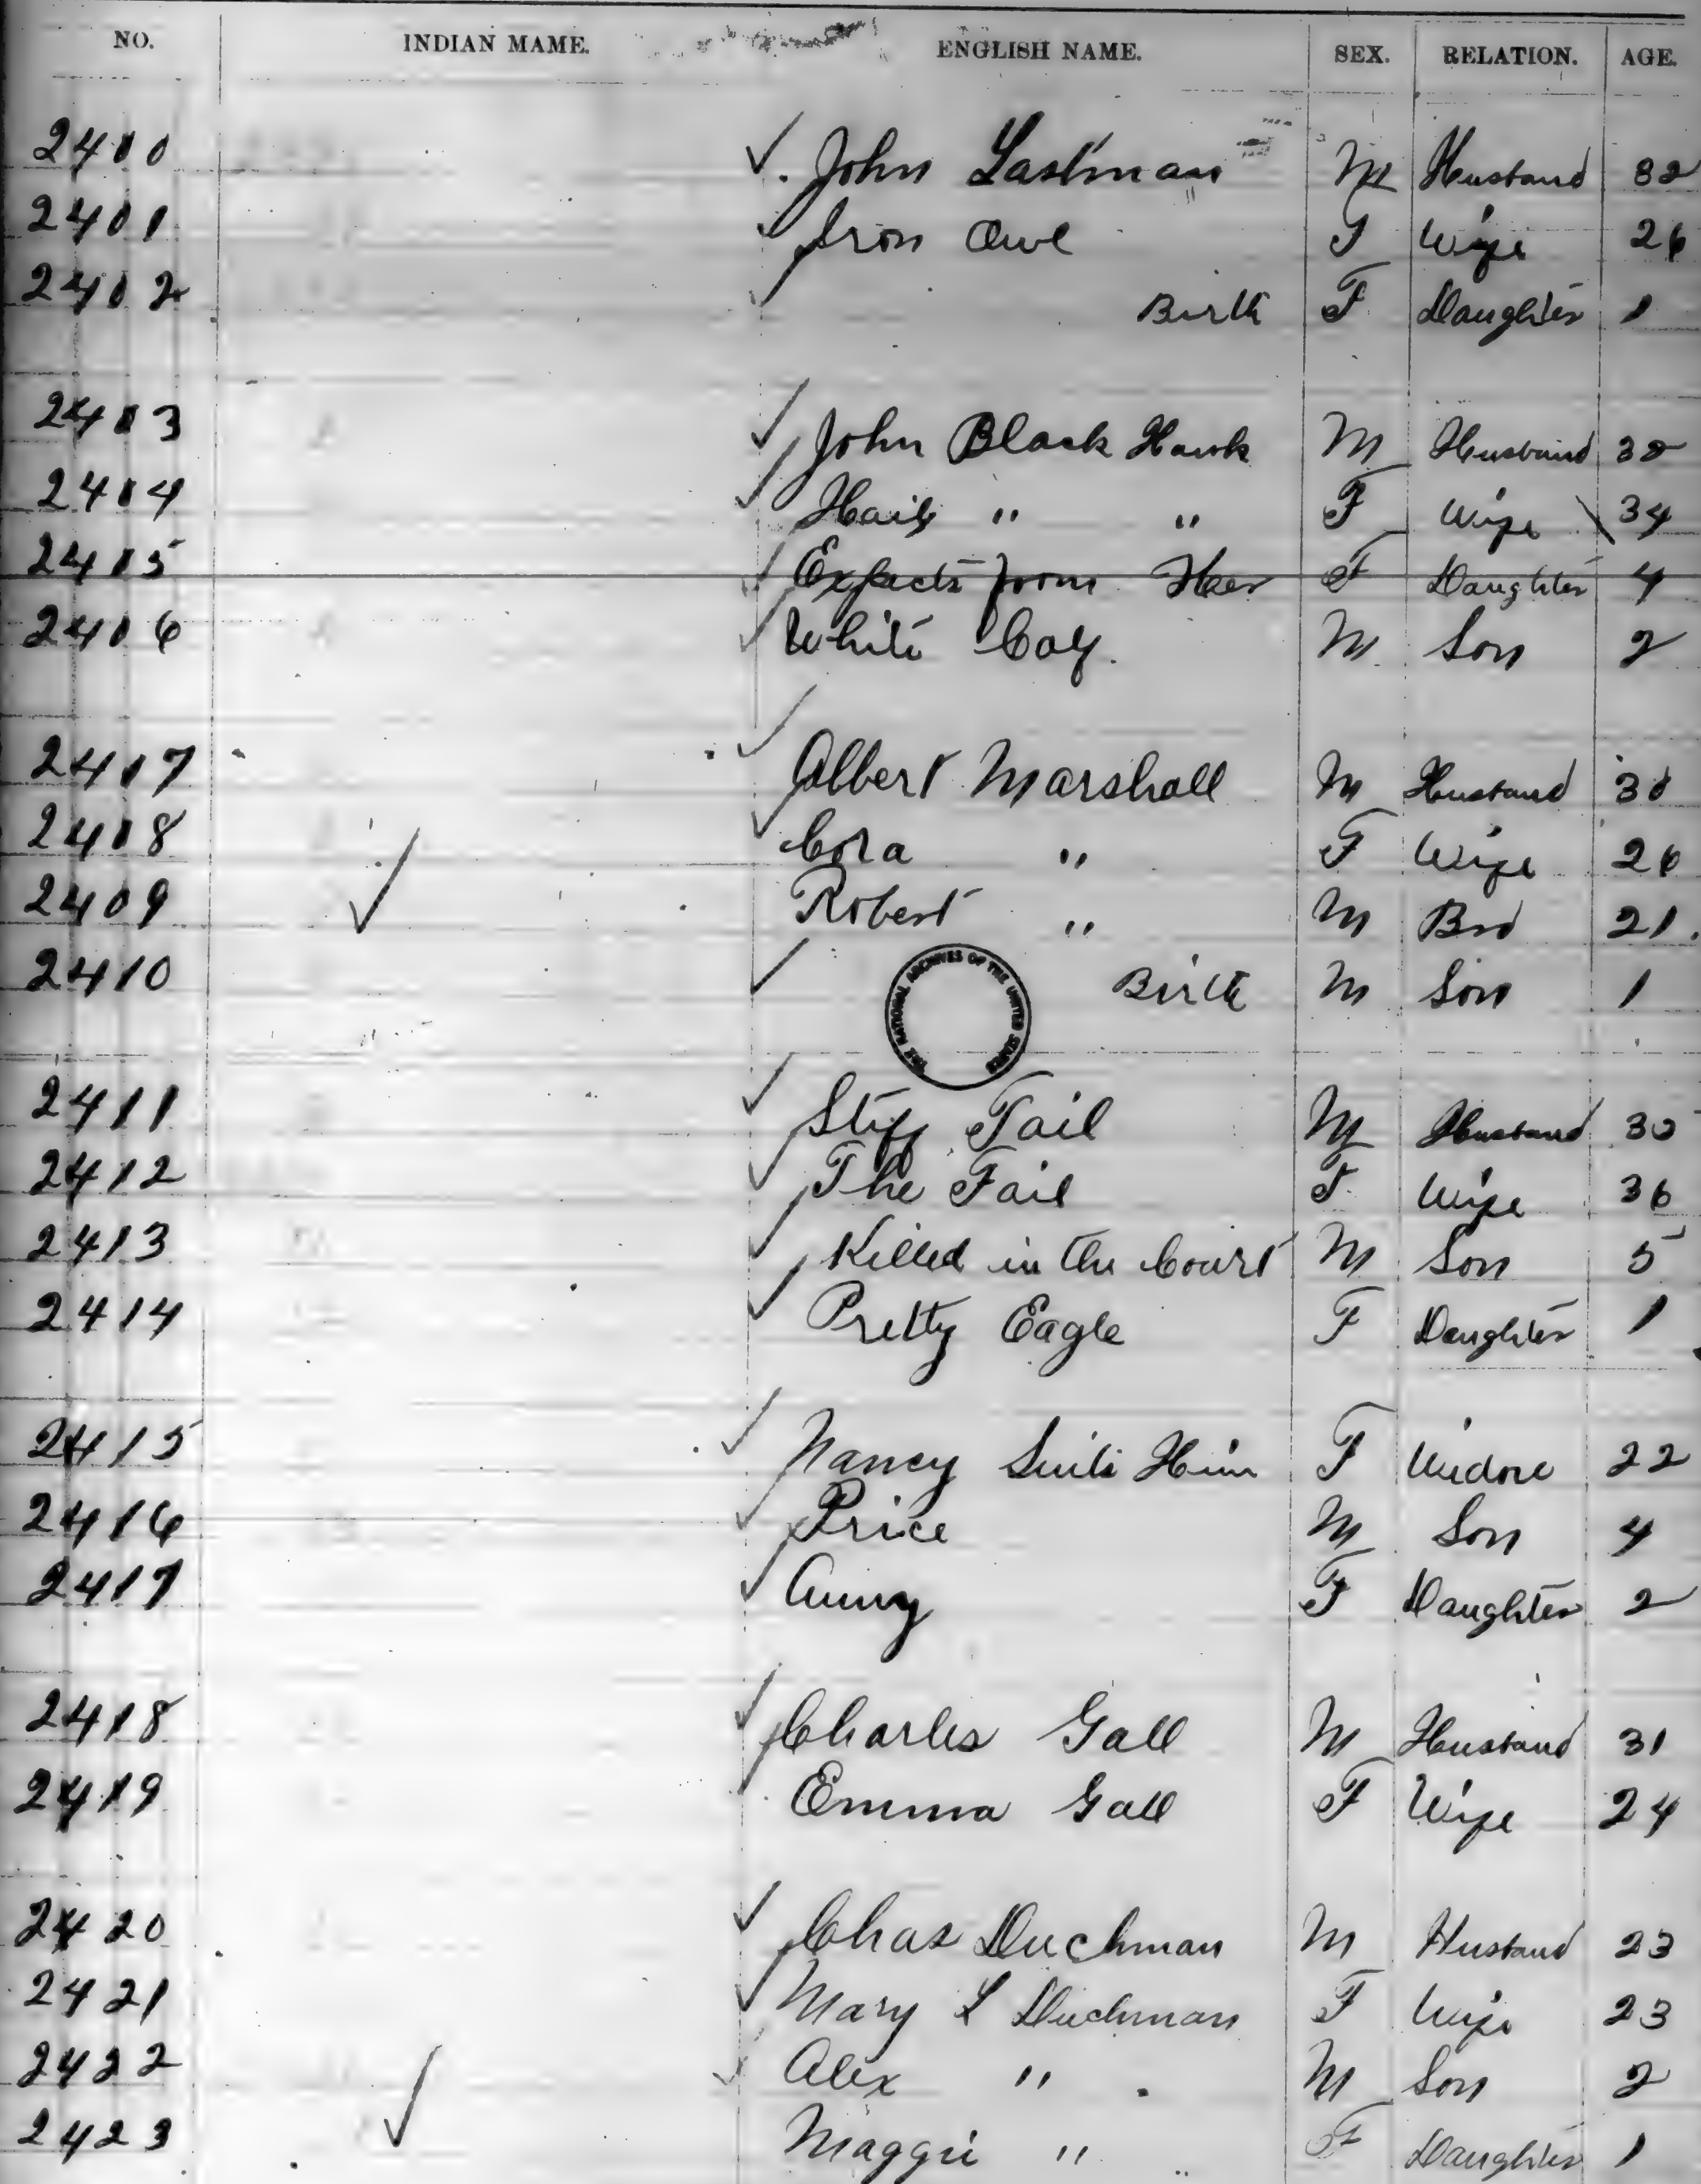 NO. INDIAN MAME. ENGLISH NAME. SEX. RELATION. AGE.
2400 John Lastman M Husband 32
2401 Iron Owl F Wife 26
2402 Birth F Daughter 1
2403 John Black Hawk M Husband 38
2404 Hail " " F Wife 34
2405 Expects from Her F Daughter 4
2406 White Calf M Son 2
2407 Albert Marshall M Husband 30
2408 Cora " F Wife 26
2409 Robert " M Bro 21.
2410 Birth M Son 1
THE NATIONAL ARCHIVES OF THE UNITED STATES
2411 Stiff Tail M Husband 30
2412 The Tail F Wife 36
2413 Killed in the Court M Son 5
2414 Pretty Eagle F Daughter 1
2415 Nancy Suits Him F Widow 22
2416 Price M Son 4
2417 F Daughter 2
2418 Charles Gall M Husband 31
2419 Emma Gall F Wife 24
2420 Chas Duchman M Husband 23
2421 Mary L Duchman F Wife 23
2422 Alex " M Son 2
2423 Maggie " F Daughter 1